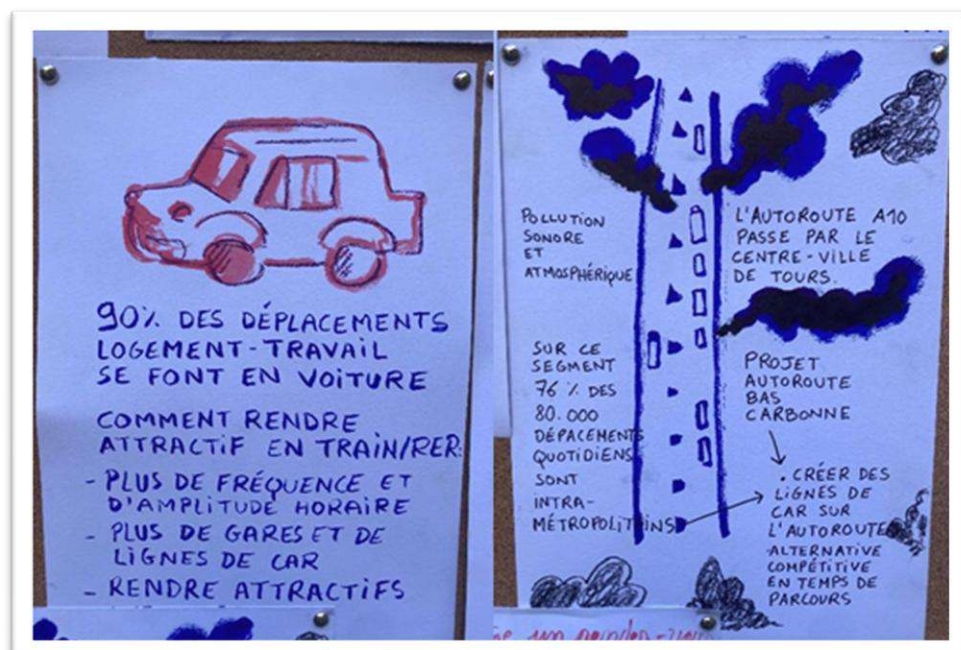 90% DES DÉPLACEMENTS
LOGEMENT-TRAVAIL
SE FONT EN VOITURE
COMMENT RENDRE
ATTRACTIF EN TRAIN/RER:
- PLUS DE FRÉQUENCE ET
D'AMPLITUDE HORAIRE
- PLUS DE GARES ET DE
LIGNES DE CAR
- RENDRE ATTRACTIFS
POLLUTION
SONORE
ET
ATMOSPHÉRIQUE
L'AUTOROUTE A10
PASSE PAR LE
CENTRE-VILLE
DE TOURS.
SUR CE
SEGMENT
76 % DES
80.000
DÉPACEMENTS
QUOTIDIENS
SONT
INTRA-
MÉTROPOLITAINS
PROJET
AUTOROUTE
BAS
CARBONNE
. CRÉER DES
LIGNES DE
CAR SUR
L'AUTOROUTE
ALTERNATIVE
COMPÉTITIVE
EN TEMPS DE
PARCOURS
un